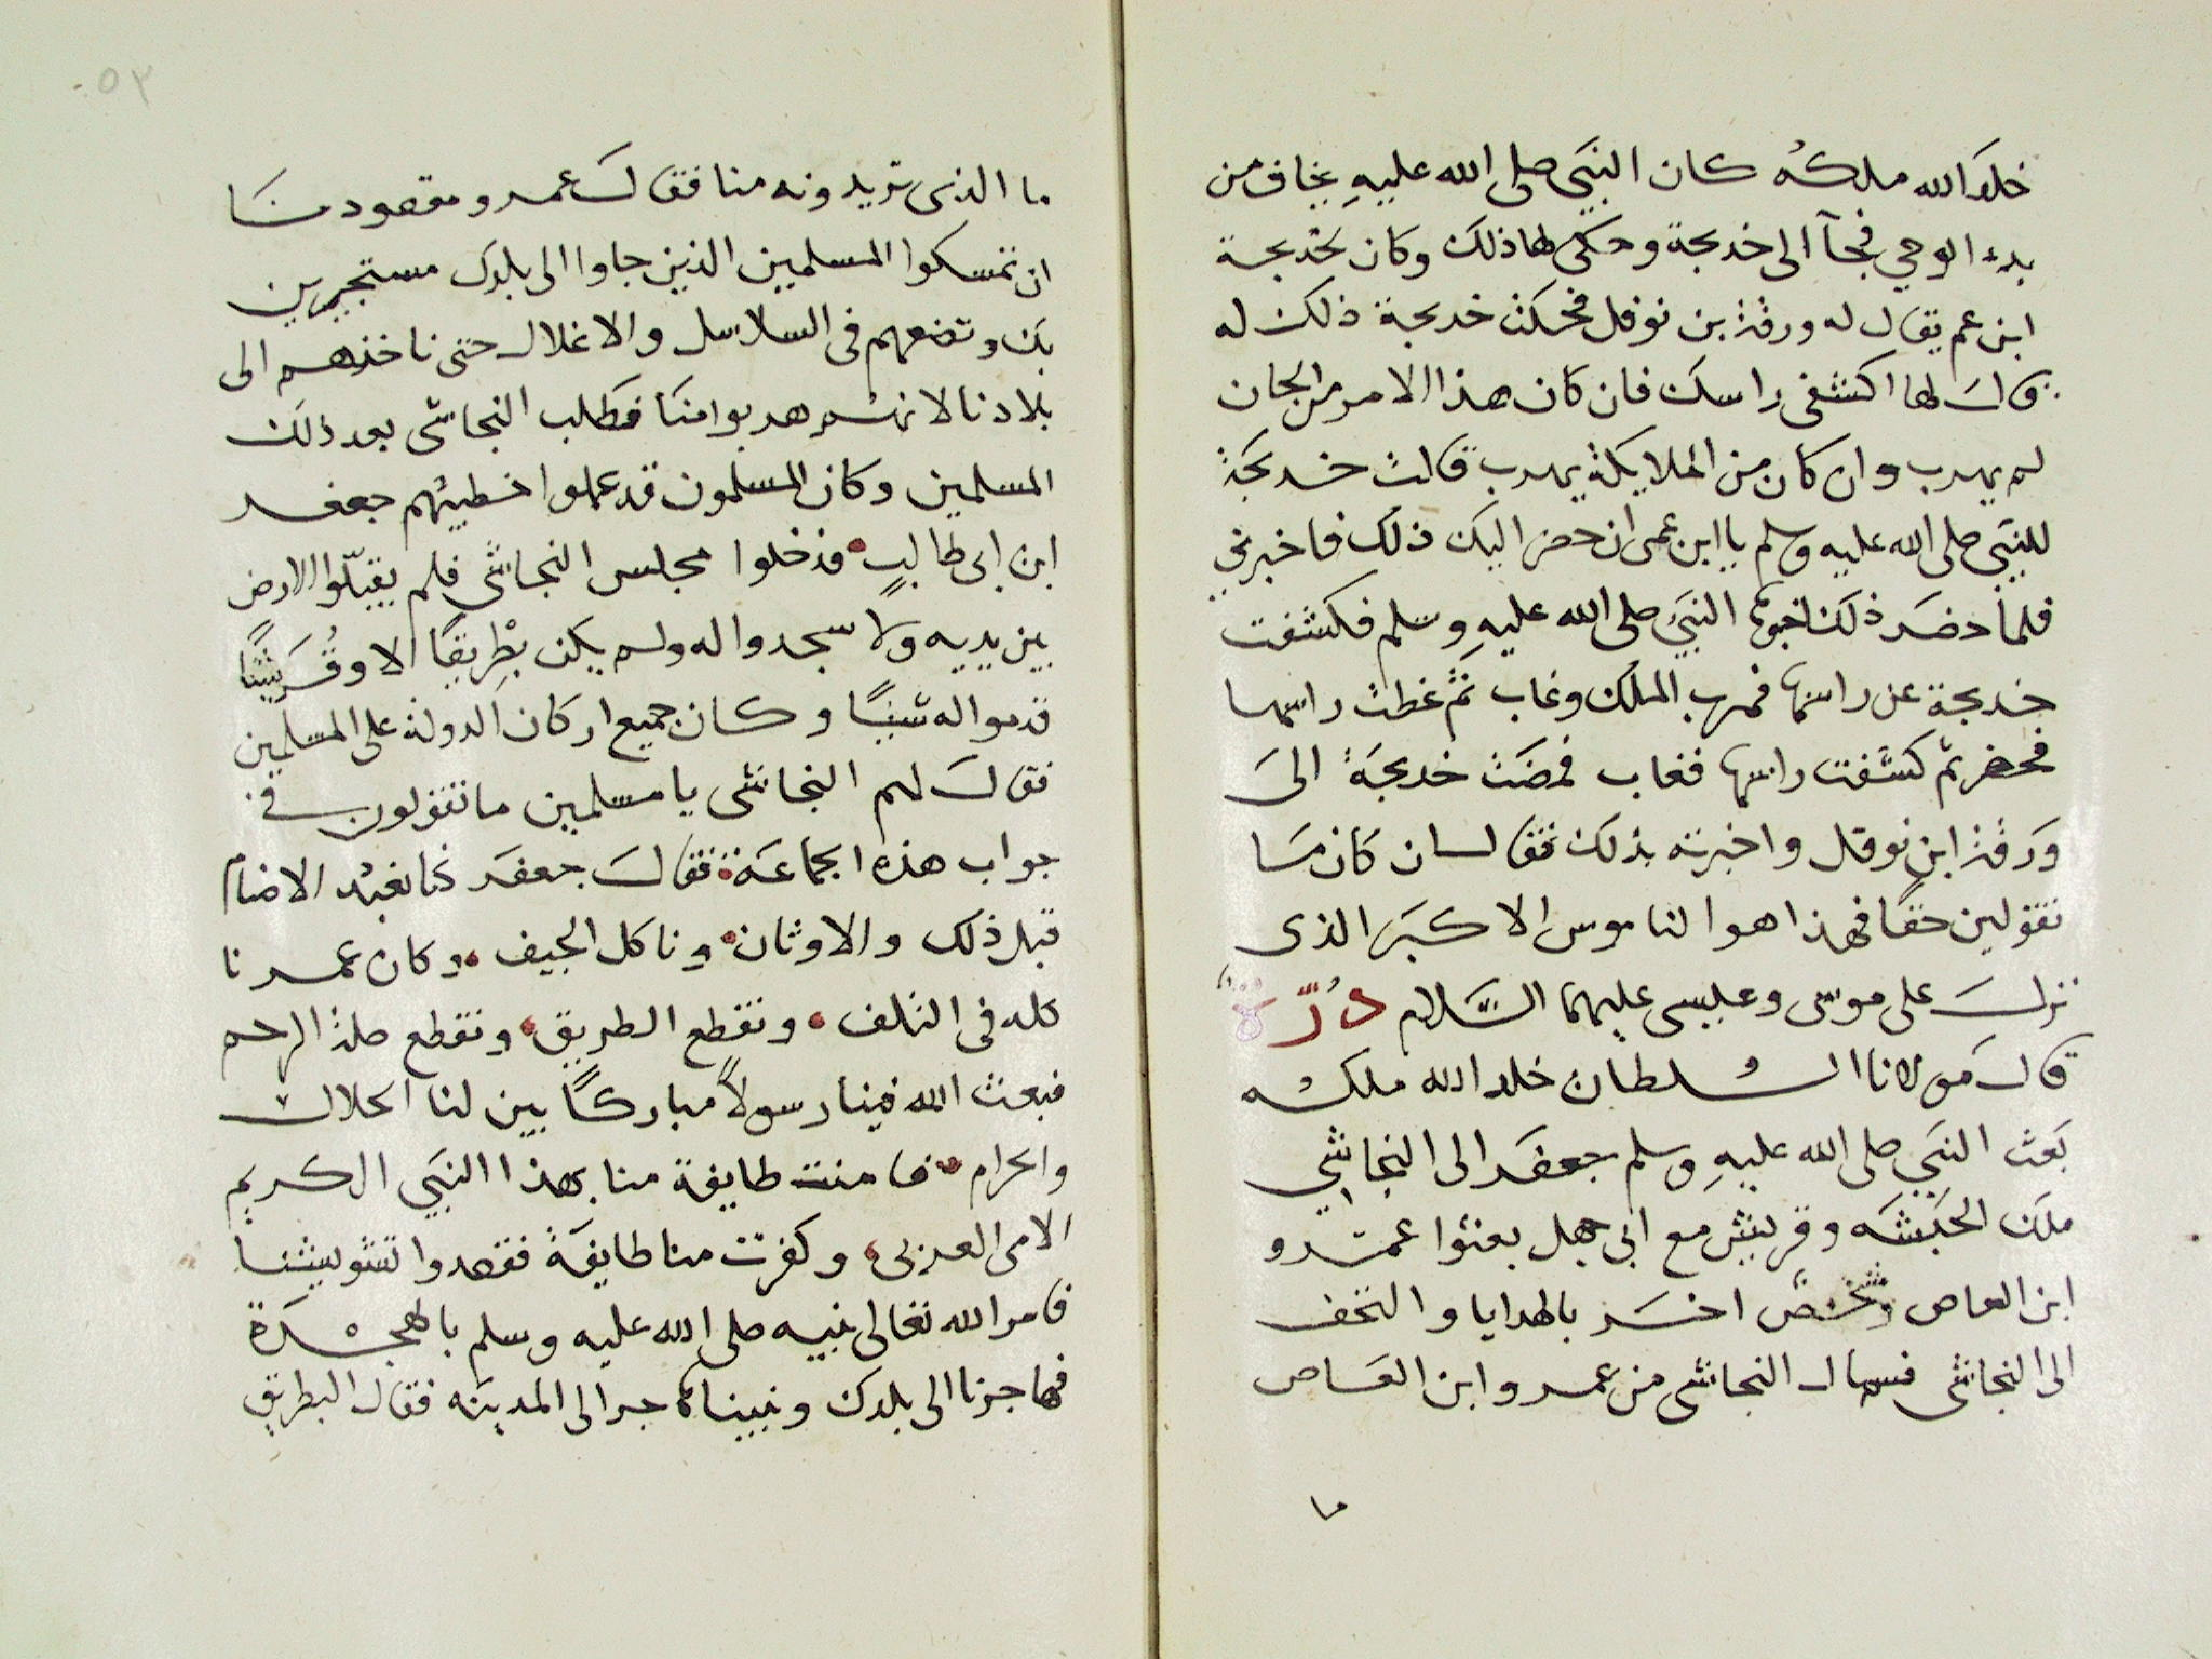 خلد الله ملكه كان النبي صلى الله عليه يخاف من
بدء الوحي فجآ الى خديجة وحكى لها ذلك وكان لخديجة
ابن عم يقال له ورقة بن نوفل فحكت خديجة ذلك له
قال لها اكشفى راسك فان كان هذا الامر من الجان
لم يهرب وان كان من الملايكة يهرب قالت خديجة
للنبي صلى الله عليه وسلم يا ابن عمى ان حضر اليك ذلك فاخبرني
فلما حضر ذلك نحوها النبي صلى الله عليه وسلم فكشفت
خديجة عن راسها فهرب الملك وغاب ثم غطت راسها
فحضر ثم كشفت راسها فغاب فمضت خديجة الى
ورقة ابن نوفل واخبرته بذلك فقال ان كان ما
تقولين حقا فهذا هو الناموس الاكبر الذى
نزل على موسى وعيسى عليهما السلام درّة
قال مولانا السلطان خلد الله ملكه
بعث النبي صلى الله عليه وسلم جعفر الى النجاشي
ملك الحبشه وقريش مع ابى جهل بعثوا عمرو
ابن العاص وشخص اخر بالهدايا والتحف
الى النجاشى فسال النجاشى من عمرو ابن العاص
ما
٥٣
ما الذى تريدونه منا فقال عمرو مقصودنا
ان تمسكوا المسلمين الذين جاوا الى بلدك مستجيرين
بك وتضعهم فى السلاسل والاغلال حتى ناخذهم الى
بلادنا لانهم هربوا منا فطلب النجاشى بعد ذلك
المسلمين وكان المسلمون قد عملوا خطيبهم جعفر
ابن ابى طالب فدخلوا مجلس النجاشي فلم يقبّلوا الارض
بين يديه ولا سجدوا له ولم يكن بطريقا الا وقريشا
قدموا له شيئا وكان جميع اركان الدولة على المسلمين
فقال لهم النجاشى يا مسلمين ما تقولون في
جواب هذه الجماعة فقال جعفر كنا نعبد الاصنام
قبل ذلك والاوثان وناكل الجيف وكان عمرنا
كله فى التلف ونقطع الطريق ونقطع صلة الرحم
فبعث الله فينا رسولا مباركا بين لنا الحلال
والحرام فامنت طايفة منا بهذا النبي الكريم
الامى العربى وكفرت منا طايفة فقصدوا تشويشنا
فامر الله تعالى نبيه صلى الله عليه وسلم بالهجرة
فهاجرنا الى بلدك ونبينا هاجر الى المدينه فقال البطريق